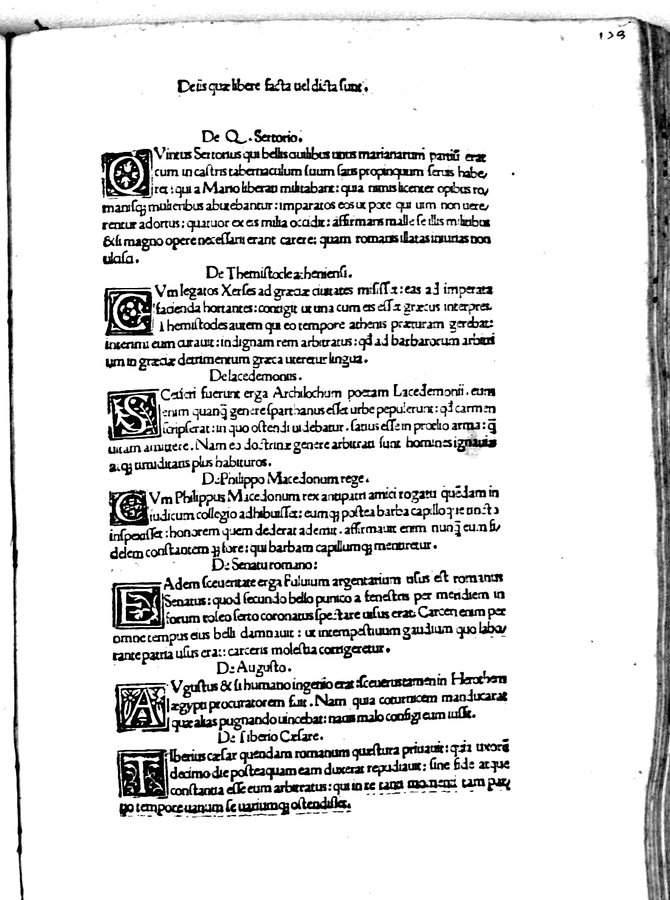 139
De iis quæ libere facta uel dicta sunt.
De Q. Sertorio.
QVintus Sertorius qui bellis ciuilibus unus marianarum partiũ erat
cum in castris tabernaculum suum sans propinquum seruis habe,
ret: qui a Mario liberati militabant: quia nimis licenter opibus ro,
manisq; mulieribus abutebantur: imparatos eos ut pote qui uim non uere,
rentur adortus: quatuor ex eis milia occidit: affirmans malle se illis militibus
& si magno opere necessarii erant carere: quam romanis illatas iniurias non
ulcisci.
De Themistocle atheniensi.
CVm legatos Xerses ad græciæ ciuitates misisset: eas ad imperata
facienda hortantes: contigit ut una cum eis esset græcus interpres.
Themistocles autem qui eo tempore athenis præturam gerebat:
interimi eum curauit: indignam rem arbitratus: qđ ad barbarorum arbitri
um in græciæ detrimentum græca uteretur lingua.
De lacedemoniis.
SEueri fuerunt erga Archilochum poetam Lacedemonii. eum
enim quanq̃ genere sparthanus esset urbe pepulerunt: qđ carmen
scripserat: in quo ostendi uidebatur. satius esse in proelio arma: q̃
uitam amittere. Nam eo doctrinæ genere arbitrati sunt homines ignauiæ
atq; timiditatis plus habituros.
De Philippo Macedonum rege.
CVm Philippus Macedonum rex antipatri amici rogatu quẽdam in
iudicum collegio adhibuisset: eumq; postea barba capilloq; re
inspexisset: honorem quem dederat ademit. affirmauit enim nunq̃ eum fi,
delem constantem q; fore: qui barbam capillumq; mentiretur.
De Senatu romano:
EAdem sceueritate erga Fuluium argentarium usus est romanus
Senatus: quod secundo bello punico a fenestris per meridiem in
forum roseo serto coronatus spectare uisus erat. Carcen enim per
omne tempus eius belli damnauit: ut intempestiuum gaudium quo labo,
rante patria usus erat: carceris molestia corrigeretur.
De Augusto.
AVgustus & si humano ingenio erat: sceuerus tamen in Herothem
ægypti procuratorem fuit. Nam quia coturnicem manducarat
quæ alias pugnando uincebat: nauis malo configi eum iussit.
De Tiberio Cæsare.
TIberius cæsar quendam romanum quæstura priuauit: quia uxorẽ
decimo die posteaquam eam duxerat repudiauit: sine fide atque
constantia esse eum arbitratus: qui in re tanti momenti tam par,
uo tempore uanum se uariumq; ostendisset.